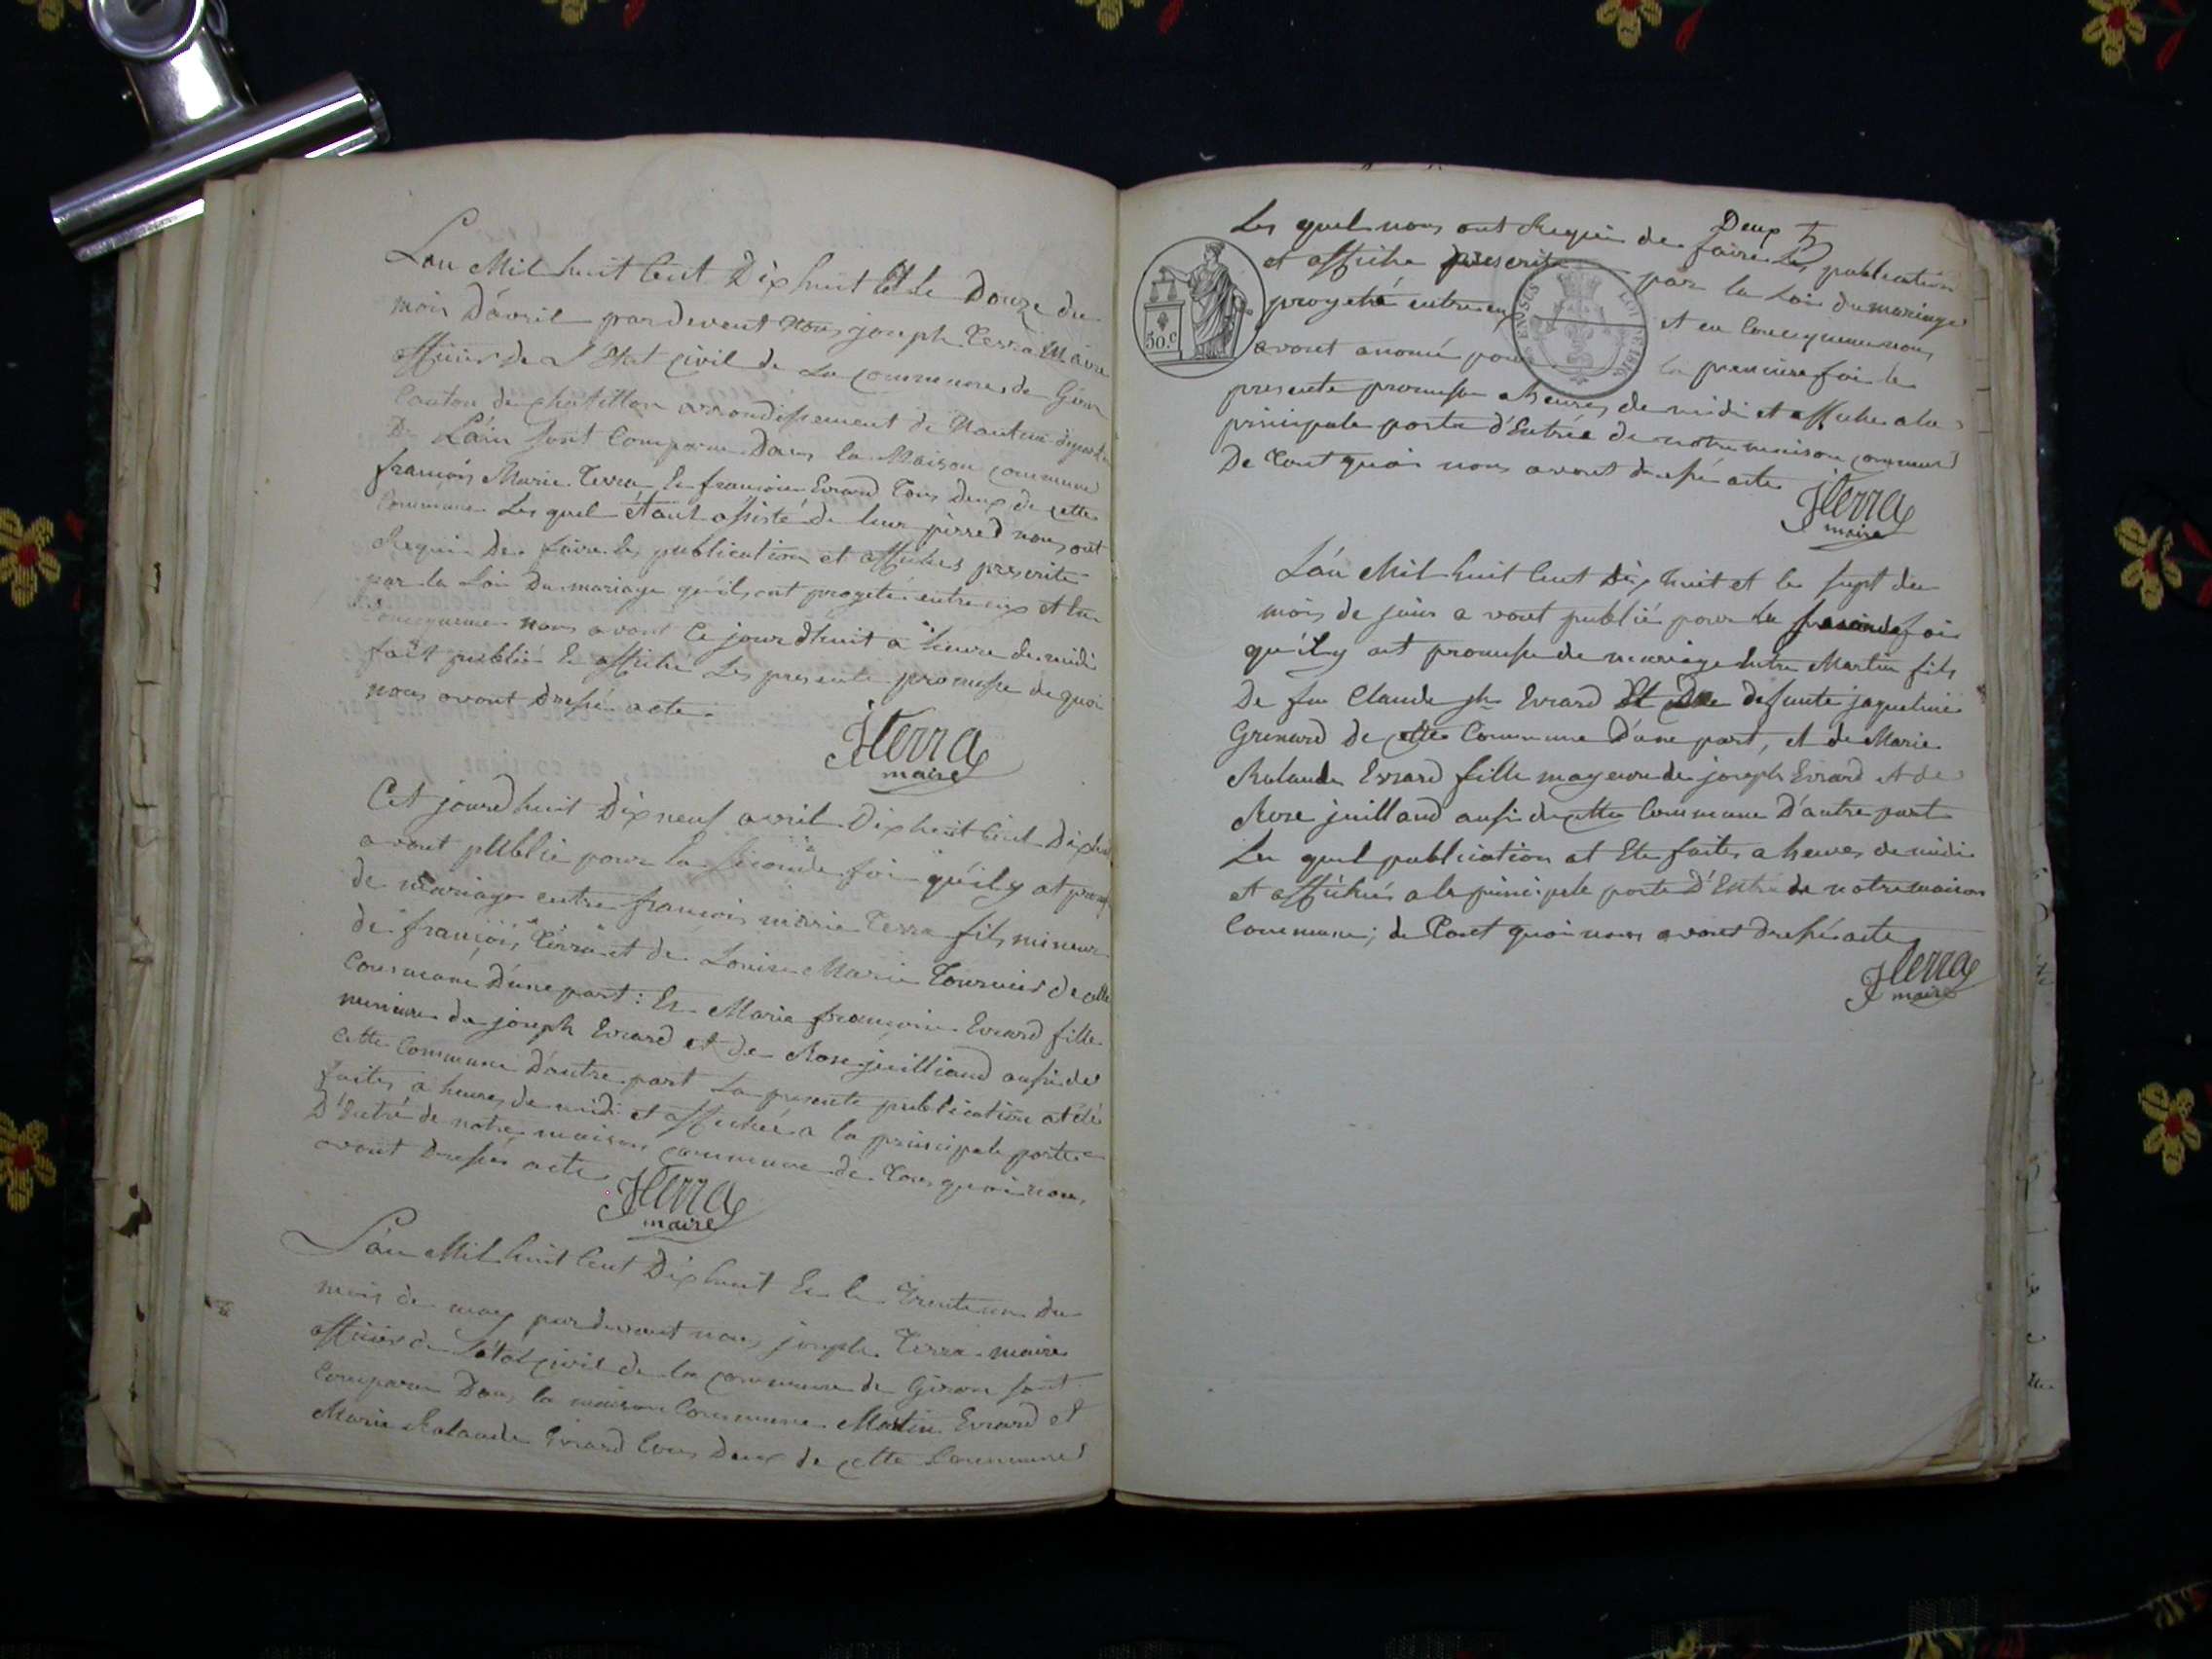 L'an Mil huit Cent Dix huit Et le Douze du
mois D'avril pardevent Nous joseph Terra Maire
officier de L'Etat civil de La commune de Giron
Canton de chatillon arrondissement de Nantua depart
De L'ain sont Comparu Dans la Maison commune
françois Marie Terra Et françoise Evrard Tous Deux de cette
Commune Les quel étant assisté de leur pirred nous ont
Requi De faire les publication et affiches prescrite
par la Loi Du mariage qu'ils ont progeté entre eux et En
Concequence nous avont Ce jourd'huit a heure de midi
fait publié Et affiche Les presente promesse de quoi
nous avont Dressé acte
JTerra
maire
Cet jourd huit Dix neuf avril Dix huit Cent Dix huit
avont publié pour la seconde foi qu'il y at prom
de mariage entre françois marie Terra fils mineur
de françois Terra et de Louise Marie Tournier de cette
Commune D'une part : Et Marie françoise Evrard fille
mineure de joseph Evrard et de Rose juilliand ausi de
cette Commune D'autre part La presente publication at été
faites a heures de midi et affichée a la principale porte
D'Entré de notre maison commune de Tous quoi nous
avont Dressés acte
JTerra
maire
L'an Mil huit Cent Dix huit Et le Trente un Du
mois de may pardevant nous joseph Terra maire
officier de L'état civil de la commune de Giron sont
Comparu Dans la maison Commune Martin Evrard et
Marie Ralande Evrard tous Deux de cette Commune
Deux
Les quel nous ont Requi de faire les publication
et affiche prescrite par la Loi du mariage
progeté entre eux et en Concequence nous
avont anoncé pour la premiere foi le
presente promesse a heures de midi et affiche a la
principale porte d'Entrée de notre maison commune
De Tout quoi nous avont dressé acte
JTerra
maire
50.c
L'án Mil huit Cent dix huit et le sept du
mois de juin avont publié pour la seconde foi
qu'il y at promesse de mariage Entre Martin fils
De feu Claude jh Evrard Et De defunte jaqueline
Grenard De cette Commune D'une part, et de Marie
Ralande Evrard fille mageure de joseph Evrard et de
Rose juilland ausi de cette Commune D'autre part
Les quel publication at Ete faites a heures de midi
et affichés a la principale porte D'Entré de notre maison
Commune; de Tout quoi nous avont dressé acte
JTerra
maire